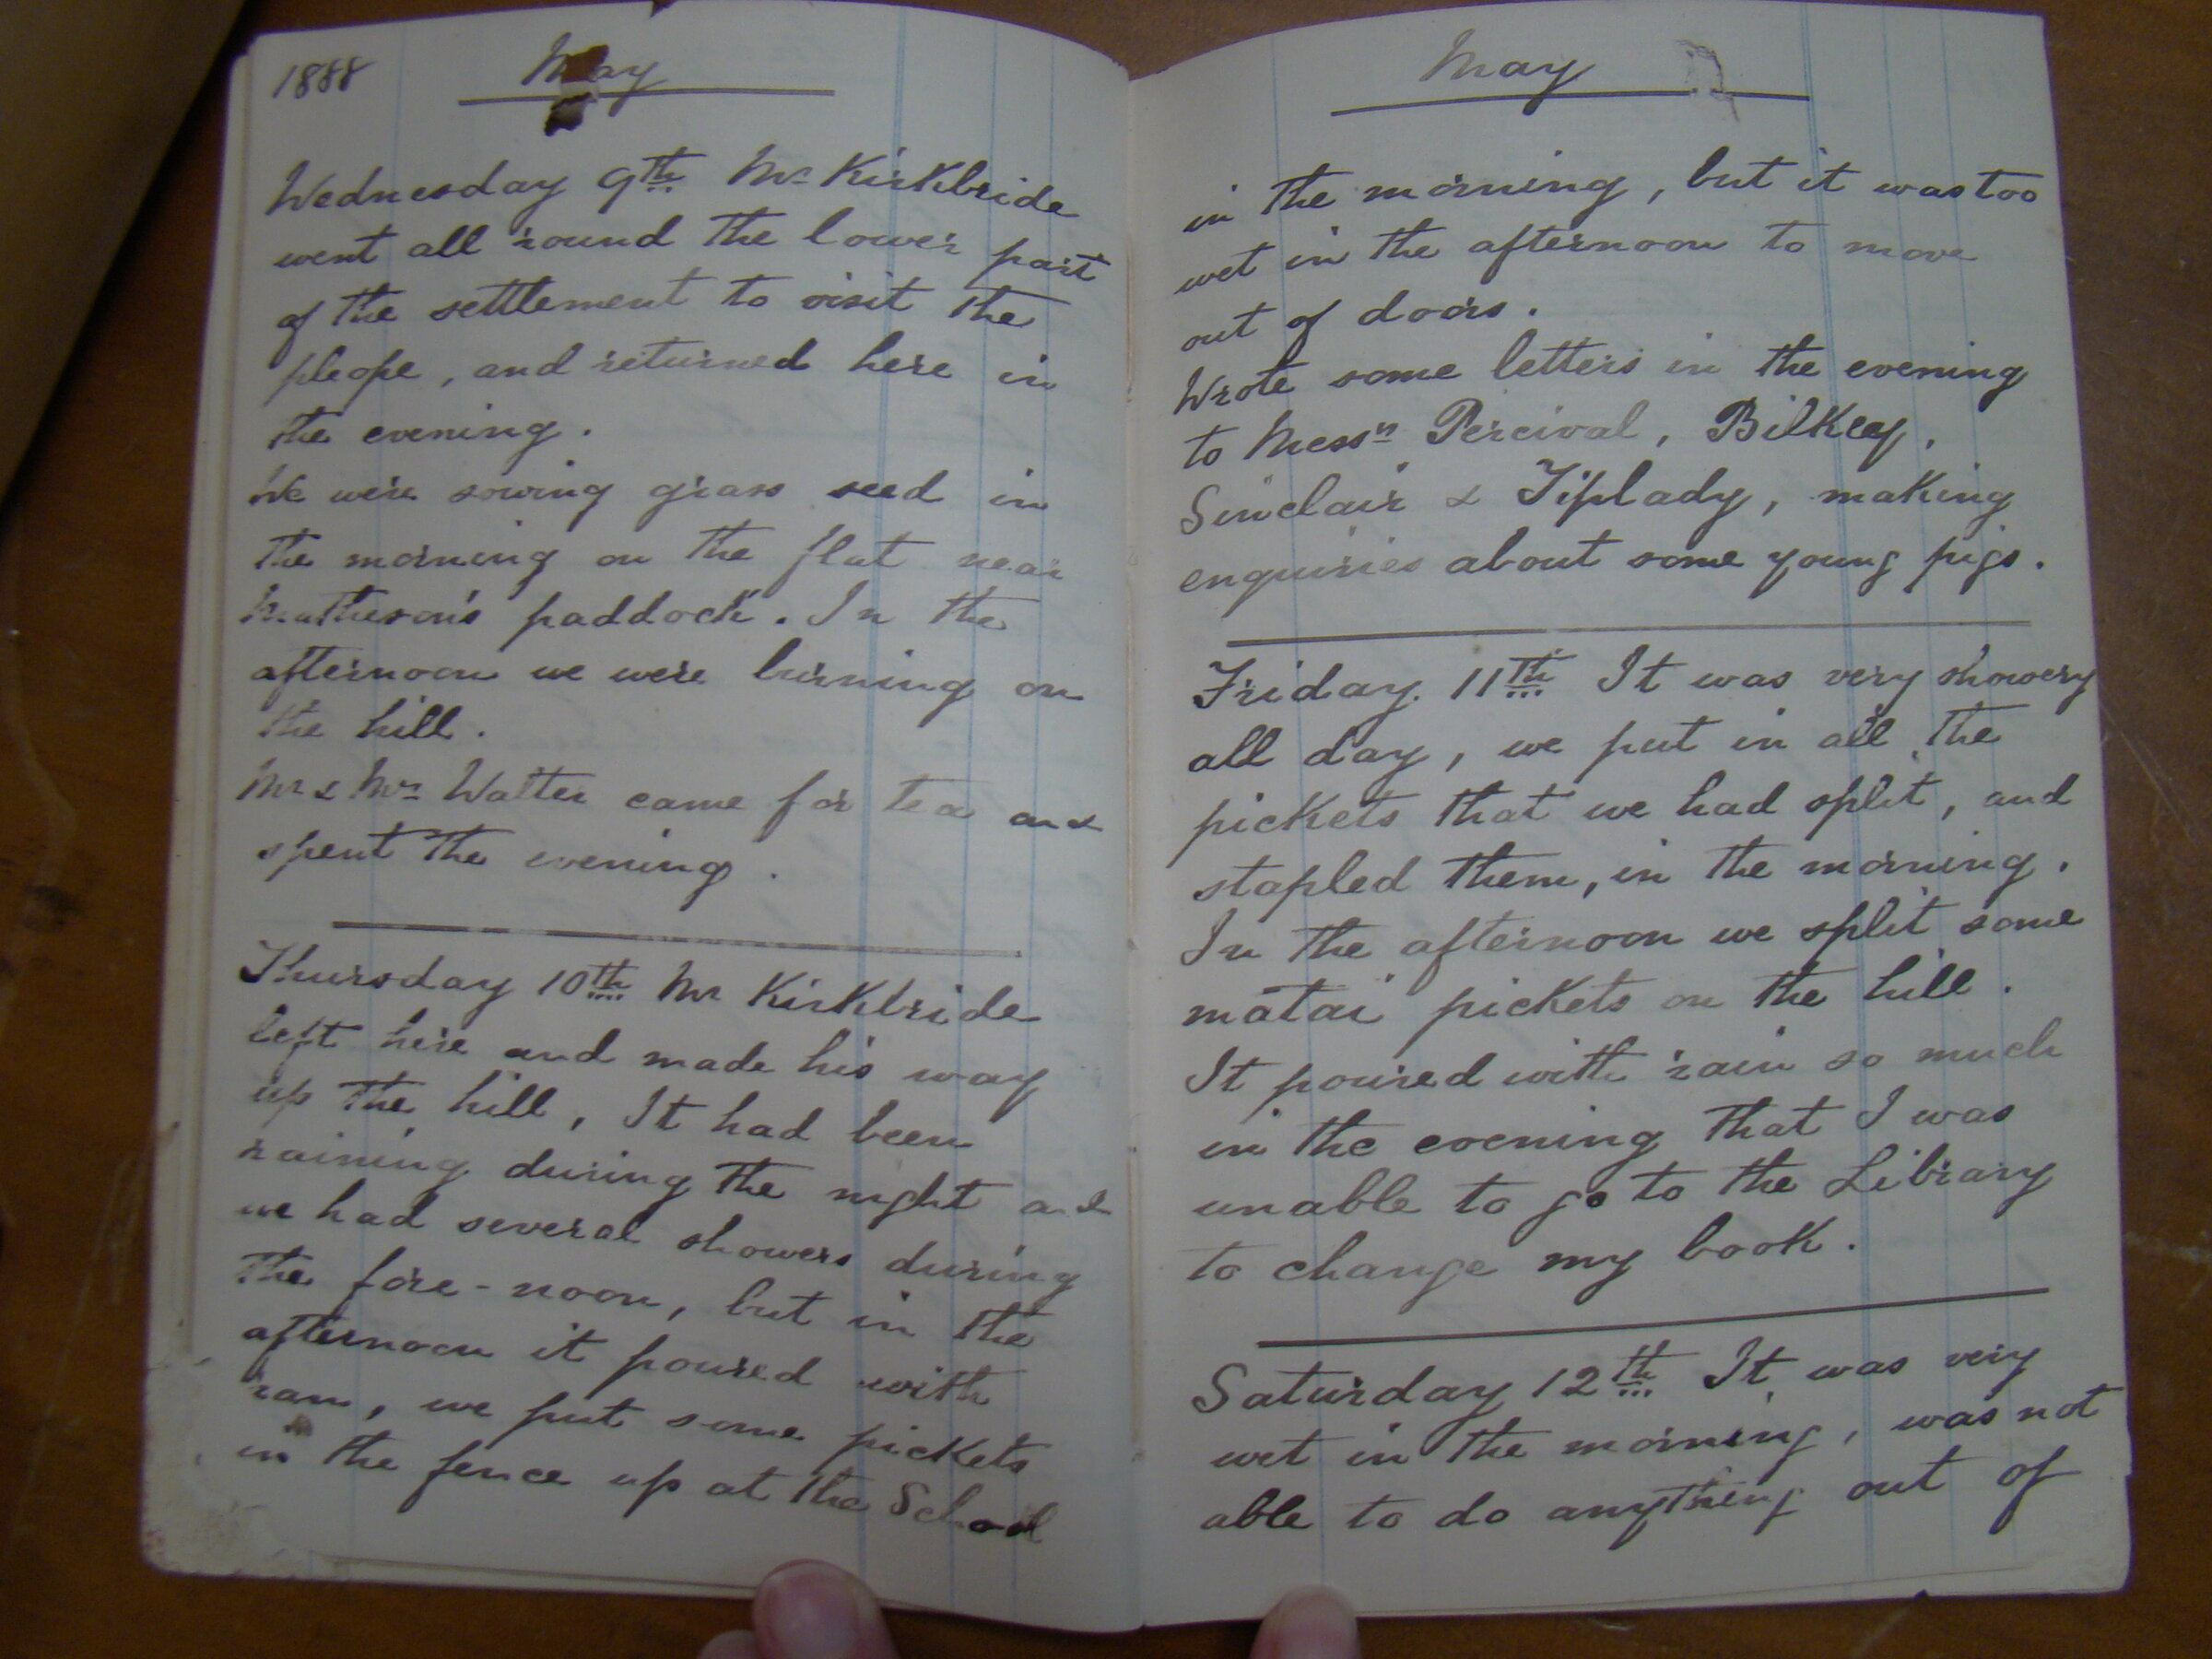 1888 May
Wednesday 9th Mr Kirkbride
went all round the lower part
of the settlement to visit the
pleope, and returned here in
the evening.
We were sowing grass seed in
the morning on the flat near
Matheson's paddock. In the
afternoon we were burning on
the hill.
Mr & Mrs Walter came for tea and
spent the evening.
Thursday 10th Mr Kirkbride
left here and made his way
up the hill, It had been
raining during the night and
we had several showers during
the fore-noon, but in the
afternoon it poured with
rain, we put some pickets
in the fence up at the School
May
in the morning, but it was too
wet in the afternoon to move
out of doors.
Wrote some letters in the evening
to Messrs Percival, Bilkey,
Sinclair & Tiplady, making
enquiries about some young pigs.
Friday 11th It was very showery
all day, we put in all the
pickets that we had split, and
stapled them, in the morning.
In the afternoon we split some
matai pickets on the hill.
It poured with rain so much
in the evening that I was
unable to go to the Library
to change my book.
Saturday 12th It was very
wet in the morning, was not
able to do anything out of